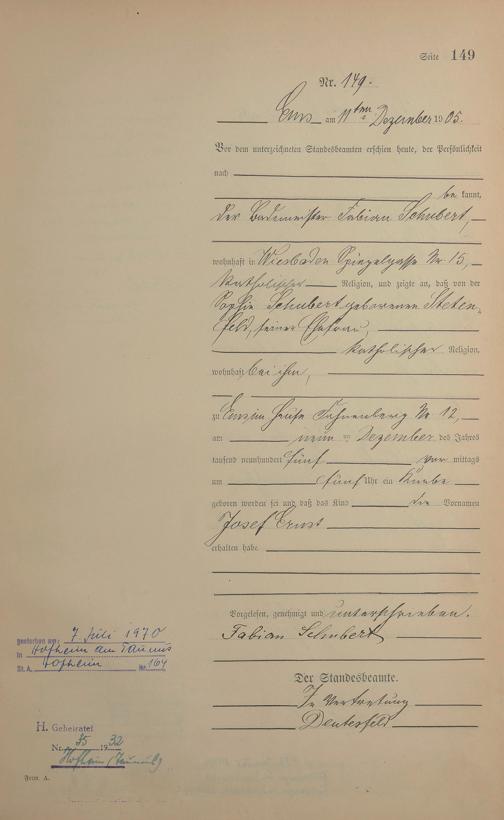 Seite 149
Nr. 149.
Ems am 11ten Dezember 1905.
Vor dem unterzeichneten Standesbeamten erschien heute, der Persönlichkeit
nach
be kannt,
der Bademeister Fabian Schubert,
wohnhaft in Wiesbaden Spiegelgasse Nr 15,
katholischer Religion, und zeigte an, daß von der
Sophie Schubert geborenen Steten-
feld, seiner Ehefrau,
katholischer Religion,
wohnhaft bei ihm,
zu Ems im Hause Nr 12,
am neun ten Dezember des Jahres
tausend neunhundert fünf vor mittags
um fünf Uhr ein Knabe
geboren worden sei und daß das Kind die Vornamen
Josef Ernst
erhalten habe
Vorgelesen, genehmigt und unterschrieben.
Fabian Schubert
Der Standesbeamte.
In Vertretung
gestorben am: 7. Juli 1970
in Hofheim am Taunus
St. A. Hofheim Nr. 164
H. Geheiratet
Nr. 35 1932
Hofheim (Taunus)
Form. A.